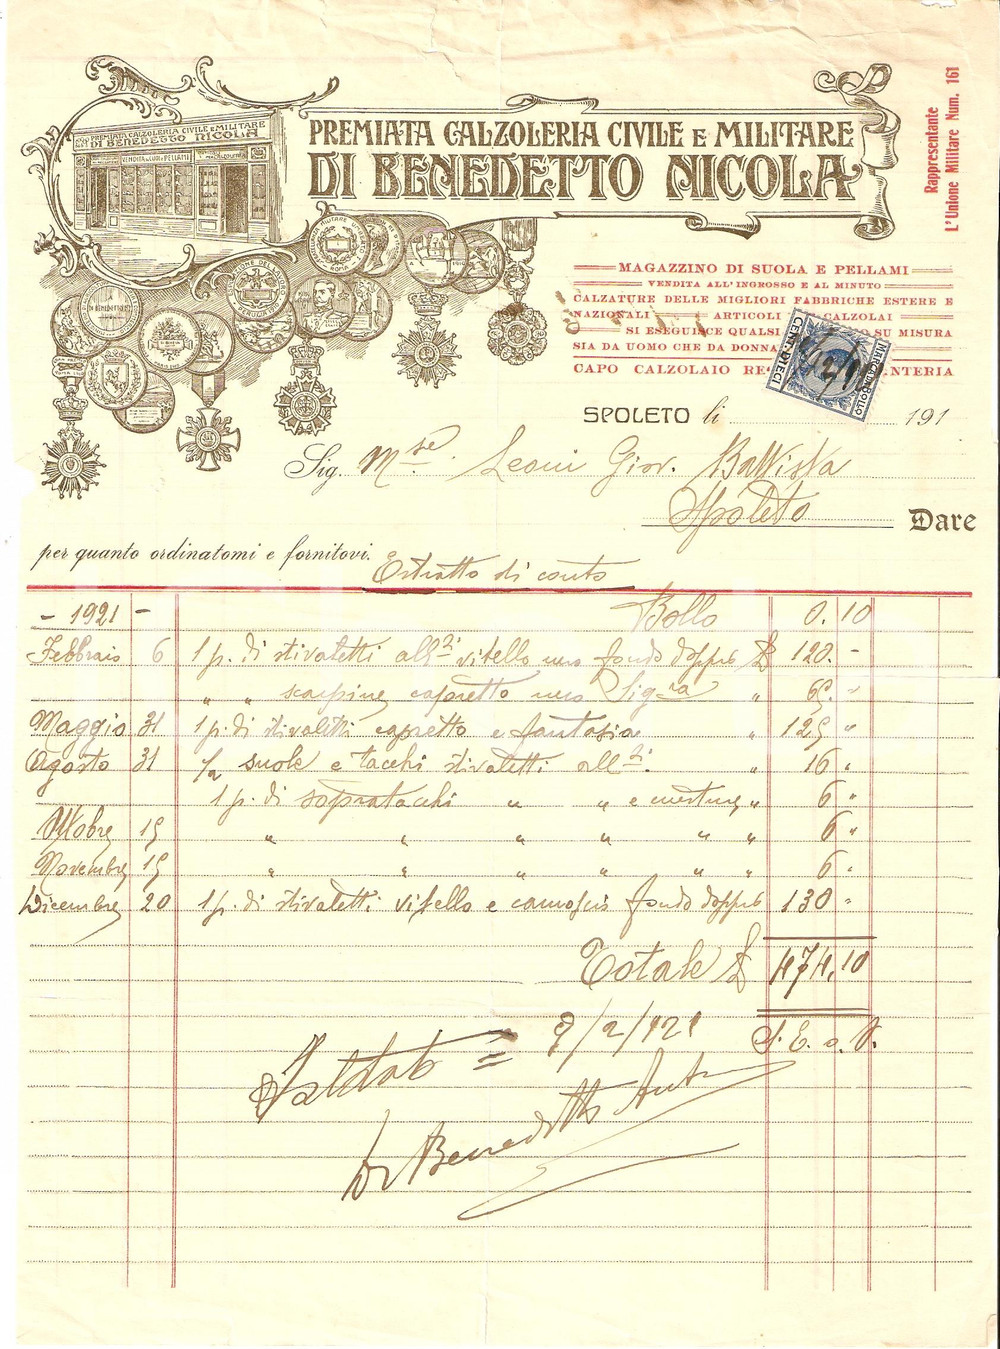 PREMIATA CALZOLERIA CIVILE E MILITARE
DI BENEDETTO NICOLA
PREMIATA CALZOLERIA CIVILE E MILITARE
DI BENEDETTO NICOLA
VENDITA DI CUOI E PELLAMI
Rappresentante
L'Unione Militare Num. 161
MAGAZZINO DI SUOLA E PELLAMI
VENDITA ALL'INGROSSO E AL MINUTO
CALZATURE DELLE MIGLIORI FABBRICHE ESTERE E
NAZIONALI ARTICOLI CALZOLAI
SI ESEGUISCE QUALSI SU MISURA
SIA DA UOMO CHE DA DONNA
CAPO CALZOLAIO RE NTERIA
MARCA DA BOLLO
CENT. DIECI
SPOLETO li 191
Sig. Leoni Giov. Battista
Spoleto
Dare
per quanto ordinatomi e fornitovi.
Estratto di conto
- 1921 - Bollo 0.10
Febbraio 6 1 p. di stivaletti all vitello uso fondo doppio £ 120.-
" " scarpine capretto uso Sig-ra " 65. "
Maggio 31 1 p. di stivaletti capretto e fantasia " 125 "
Agosto 31 1/2 suole e tacchi stivaletti all " 16 "
1 p. di sopratacchi " " e " 6 "
Ottobre 15 " " " " " " 6 "
Novembre 15 " " " " " " 6 "
Dicembre 20 1 p. di stivaletti vitello e camoscio fondo doppio 130 "
Totale £ 474.10
S. E. o O.
Saldato = 9/2/921
Di Benedetto